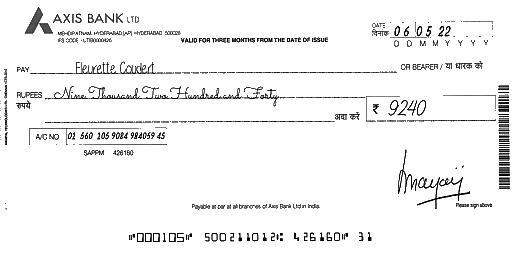 AXIS BANK LTD
MEHDIPATNAM, HYDERABAD [AP] HYDERABAD 500028
IFS CODE - UTIB0000426
VALID FOR THREE MONTHS FROM THE DATE OF ISSUE
DATE
दिनांक 06 05 22
D D M M Y Y Y Y
PAY Fleurette Coudert OR BEARER / या धारक को
RUPEES Nine Thousand Two Hundred and Forty
रुपये अदा करें ₹ 9240
A/C NO 01 560 105 9084 984059 45
SAPPM 426160
Please sign above
Payable at par at all branches of Axis Bank Ltd in India.
⑈000105⑈ 500211012⑆ 426160⑈ 31